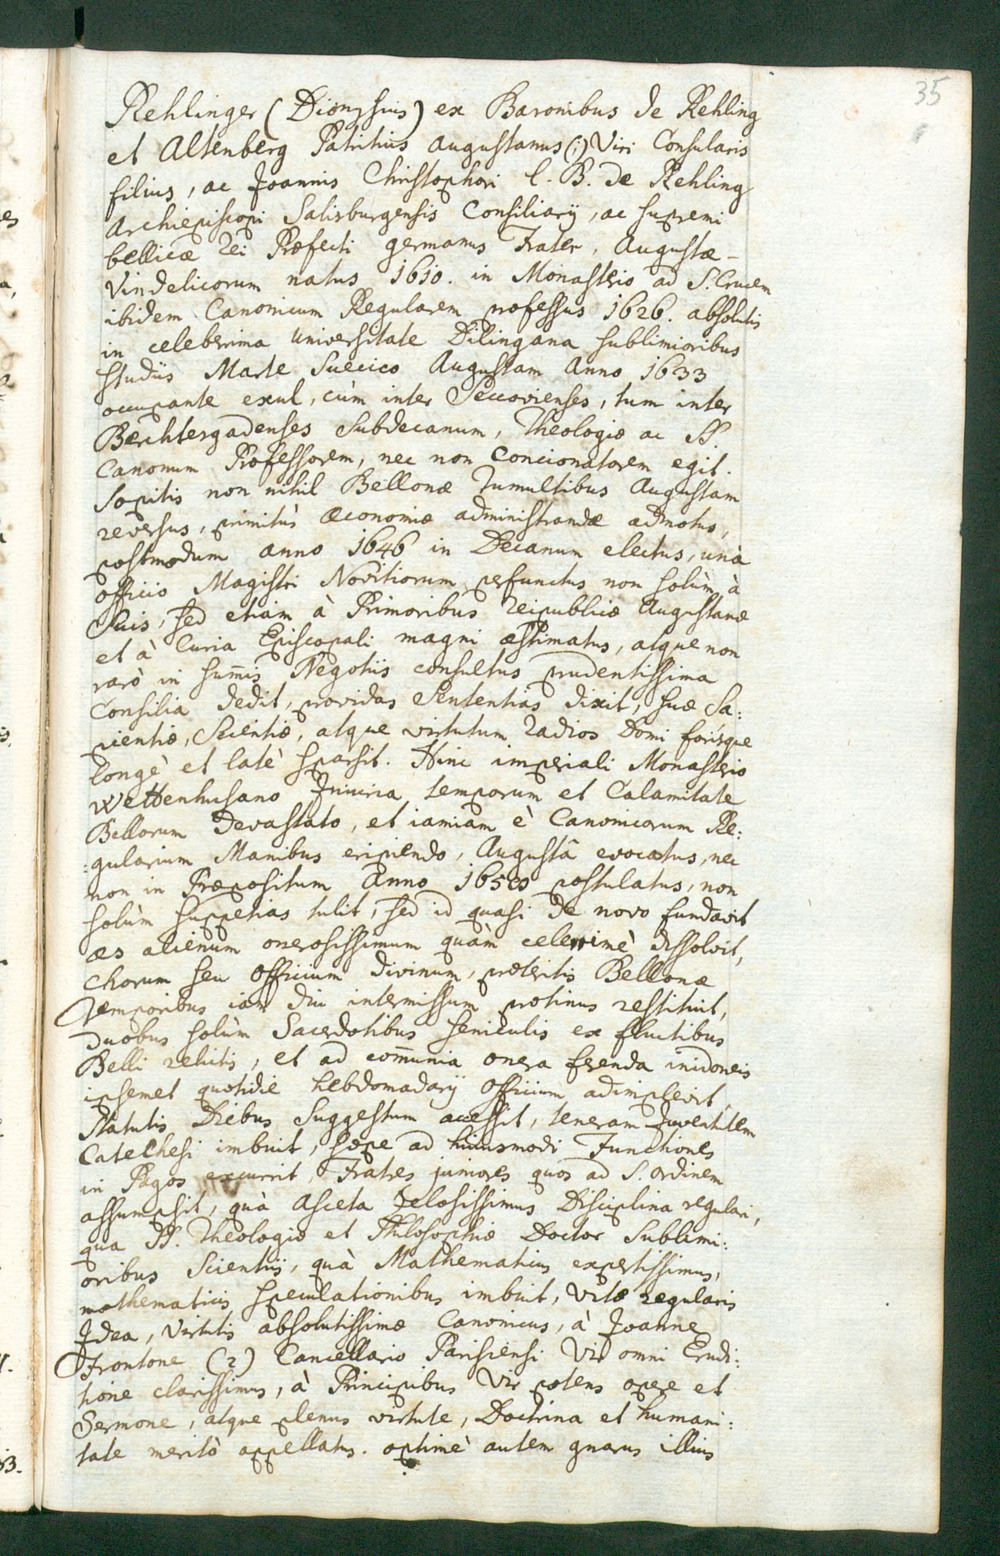 35
Rehlinger (Dionysius) ex Baronibus de Rehling
et Altenberg Patritius Augustanus (1) Viri Consularis
filius, ac Joannis Christophori l. B. de Rehling
Archiepiscopi Salisburgensis Consiliarij, ac supremi
bellicæ rei Præfecti germanus Frater, Augustæ-
Vindelicorum natus 1610. in Monasterio ad S. Crucem
ibidem Canonicum Regularem professus 1626. absolutis
in celeberrima Universitate Dilingana sublimioribus
studiis Marte Suecico Augustam Anno 1633
occupante exul, cùm inter Seccovienses, tum inter
Berchtergadenses Subdecanum, Theologiæ ac SS.
Canonum Professorem, nec non Concionatorem egit.
Sopitis non nihil Bellonæ Tumultibus Augustam
reversus, primitùs æconomiæ administrandæ admotus,
postmodum anno 1646 in Decanum electus, unà
officio Magistri Novitiorum perfunctus non solùm à
Suis, sed etiam à Primoribus reipublicæ Augustanæ
et à Curia Episcopali magni æstimatus, atque non
rarò in sum̃is Negotiis consultus prudentissima
Consilia dedit, providas Sententias dixit, suæ Sa:
pientiæ, Scientiæ, atque virtutum radios Domi forisque
longè et latè sparsit. Hinc imperiali Monasterio
Wettenhusano Injuria temporum et Calamitate
Bellorum devastato, et iamiam è Canonicorum Re:
:gularium Manibus eripiendo, Augustâ evocatus, nec
non in Præpositum Anno 1658 postulatus, non
solùm suppetias tulit, sed id quasi de novo fundavit
æs alienum onerosissimum quàm celerrimè dissolvit,
Chorum seu Officium divinum, præteritis Bellonæ
Temporibus iam diu intermissum protinus restituit,
duobus solùm Sacerdotibus seniculis ex fluctibus
Belli relictis, et ad com̃unia onera ferenda inidoneis
ipsemet quotidie hebdomadarij Officium adimplevit,
Statutis Diebus Suggestum accessit, teneram Juventutem
Catechesi imbuit, sæpe ad huiusmodi Functiones
in Pagos excurrit, Fratres juniores quos ad S. ordinem
assumpsit, quà Asceta Zelosissimus Disciplina regulari,
qua SS. Theologiæ et Philosophiæ Doctor Sublimi:
oribus Scientiis, quà Mathematicus expertissimus,
mathematicis speculationibus imbuit, Vitæ regularis
Idea, Virtutis absolutissimæ Canonicus, à Joanne
Frontone (2) Cancellario Parisiensi Vir omni Erudi:
tione clarissimus, à Principibus Vir potens opere et
Sermone, atque plenus virtute, Doctrina et humani:
tate meritò appellatus. optimè autem gnarus illius